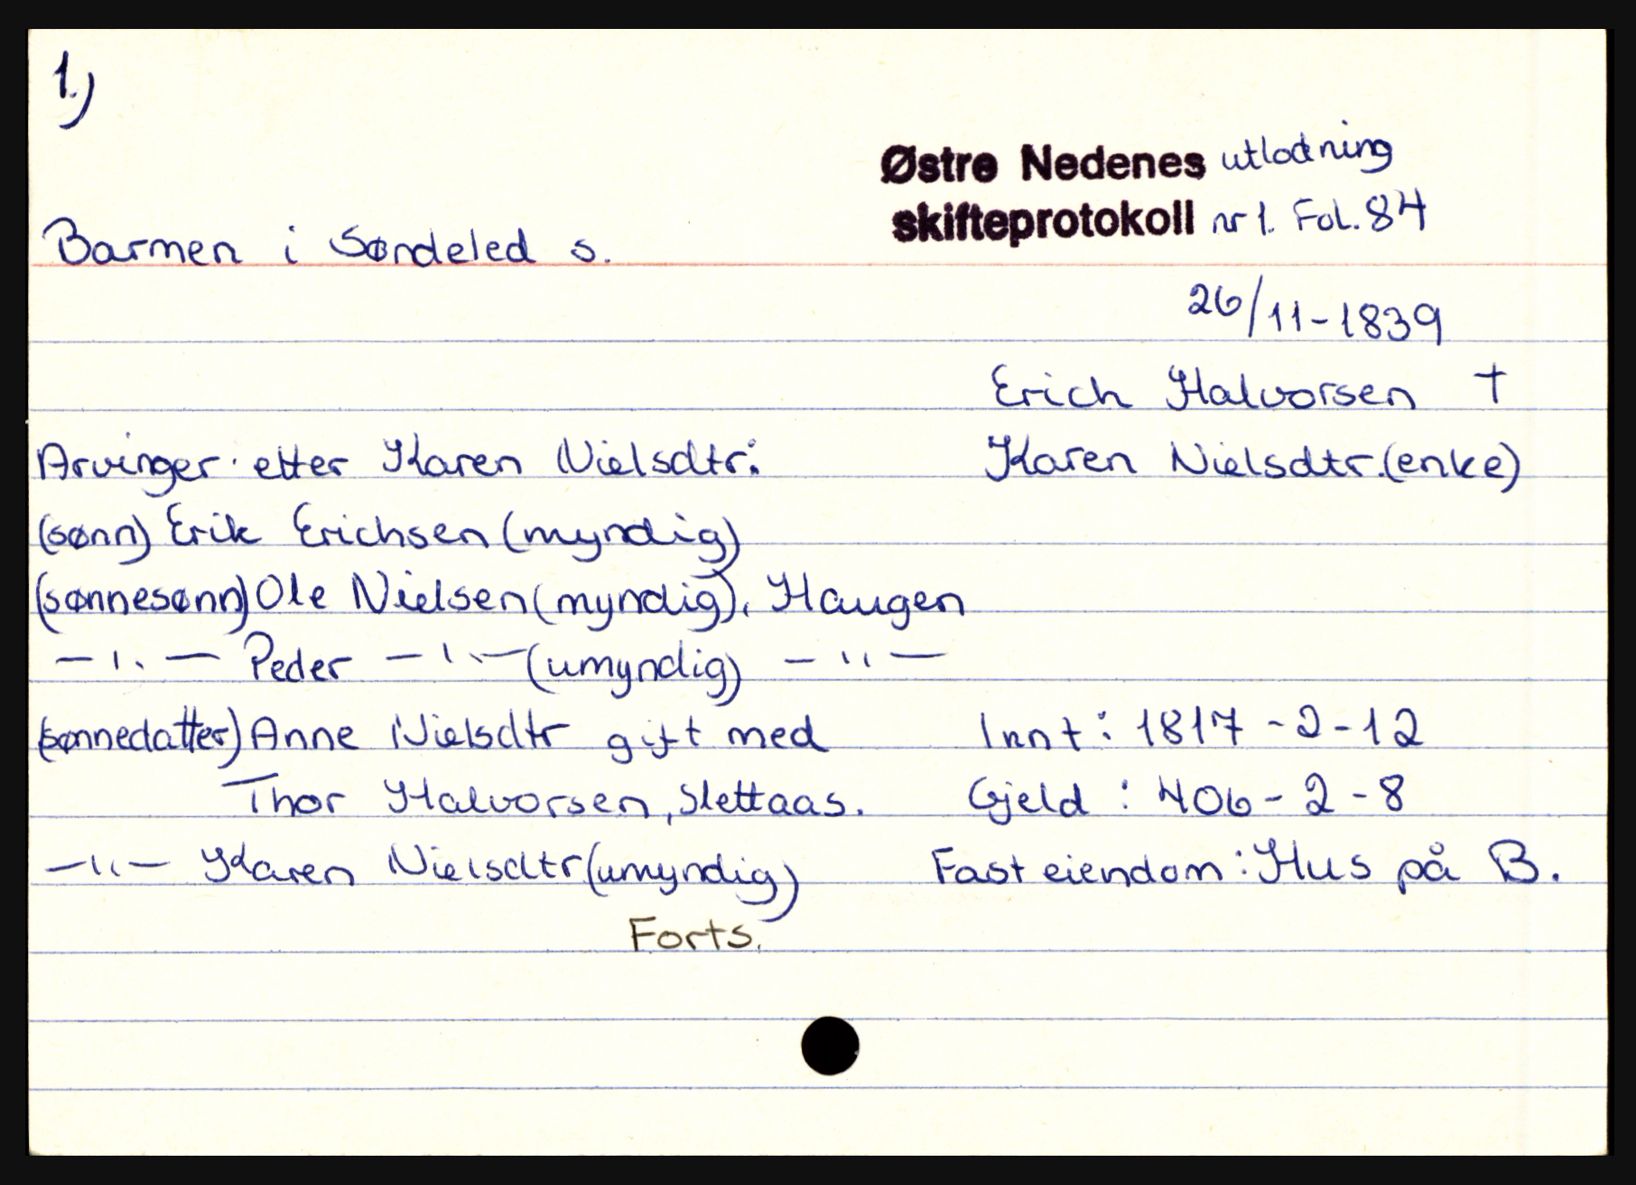 1.)
Østre Nedenes utlodning
skifteprotokoll nr 1. Fol. 84
Barmen i Søndeled s.
26/11-1839
Erich Halvorsen †
Arvinger etter Karen Nielsdtr: Karen Nielsdtr. (enke)
(sønn) Erik Erichsen (myndig)
(sønnesønn) Ole Nielsen (myndig), Haugen
—"— Peder —"— (umyndig) —"—
(sønnedatter) Anne Nielsdtr gift med Innt: 1817-2-12
Thor Halvorsen, Slettaas. Gjeld: 406-2-8
—"— Karen Nielsdtr (umyndig) Fast eiendom: Hus på B.
Forts.